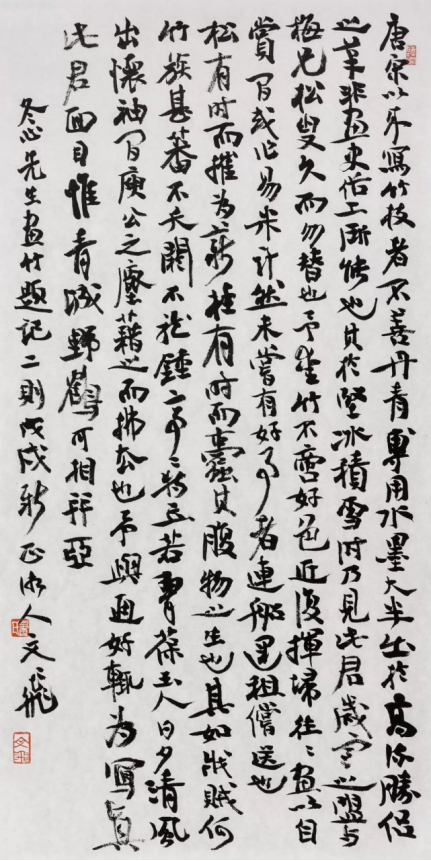 唐宋以來寫竹枝者不善丹青專用水墨大半出於高流勝侶
之筆非畫史俗工所能也其於堅冰積雪時乃見此君歲寒之盟与
梅兄松叟久而勿替也予愛竹不啻好色近復揮埽往〻畫以自
賞間或作易米計然未嘗有好事者連船運租償送也
松有時而摧為薪桂有時而蠹其腹物之生也具如戕賊何
竹族甚蕃不夭閼不 特立若青篠玉人日夕清風
出懷袖間庾公之塵藉之而拂去也予與画好輒為寫真
此君面目惟青城野鶴可相 亞
冬心先生畫竹題記二則戊戌新正 人文飛